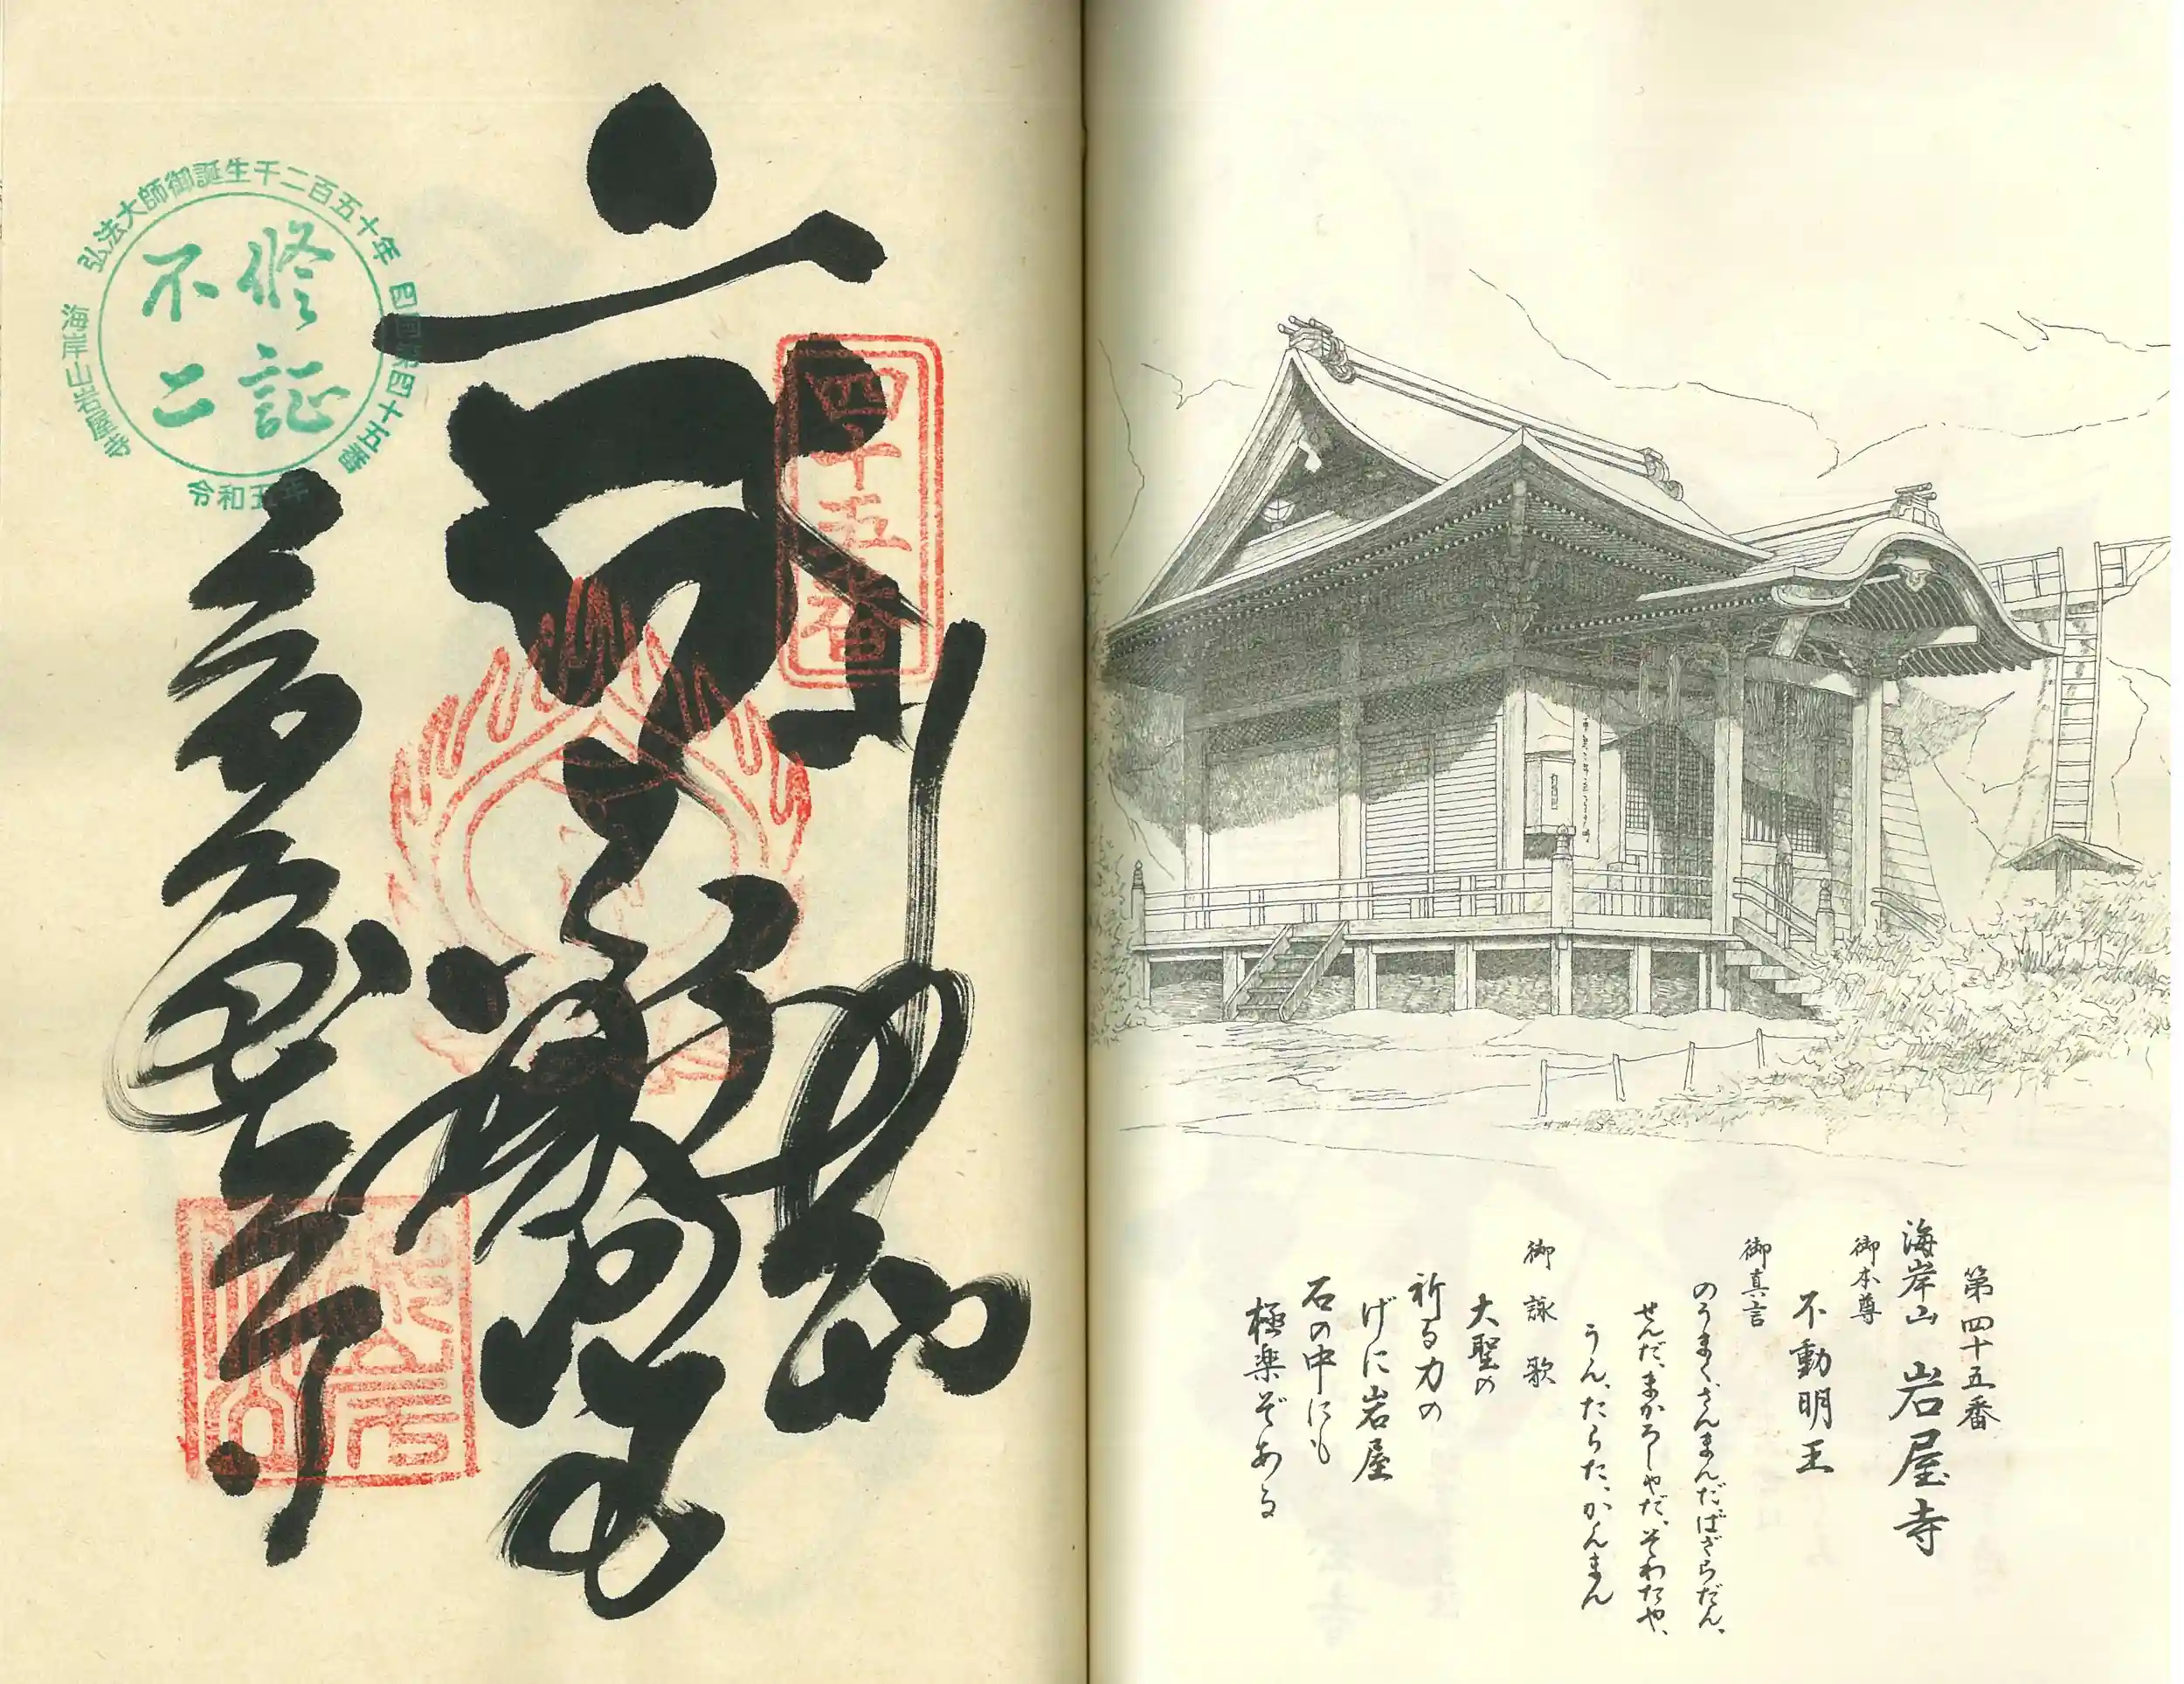 第四十五番
海岸山 岩屋寺
御本尊
不動明王
御真言
のうまく、さんまんだ、ばざらだん、
せんだ、まかろしゃだ、そわたや、
うん、たらた、かんまん
御詠歌
大聖の
祈る力の
げに岩屋
石の中にも
極楽ぞある
四十五番
奉拝
弘法大師御誕生千二百五十年
四国第四十五番
海岸山岩屋寺
令和五年
修証
不二
岩屋寺